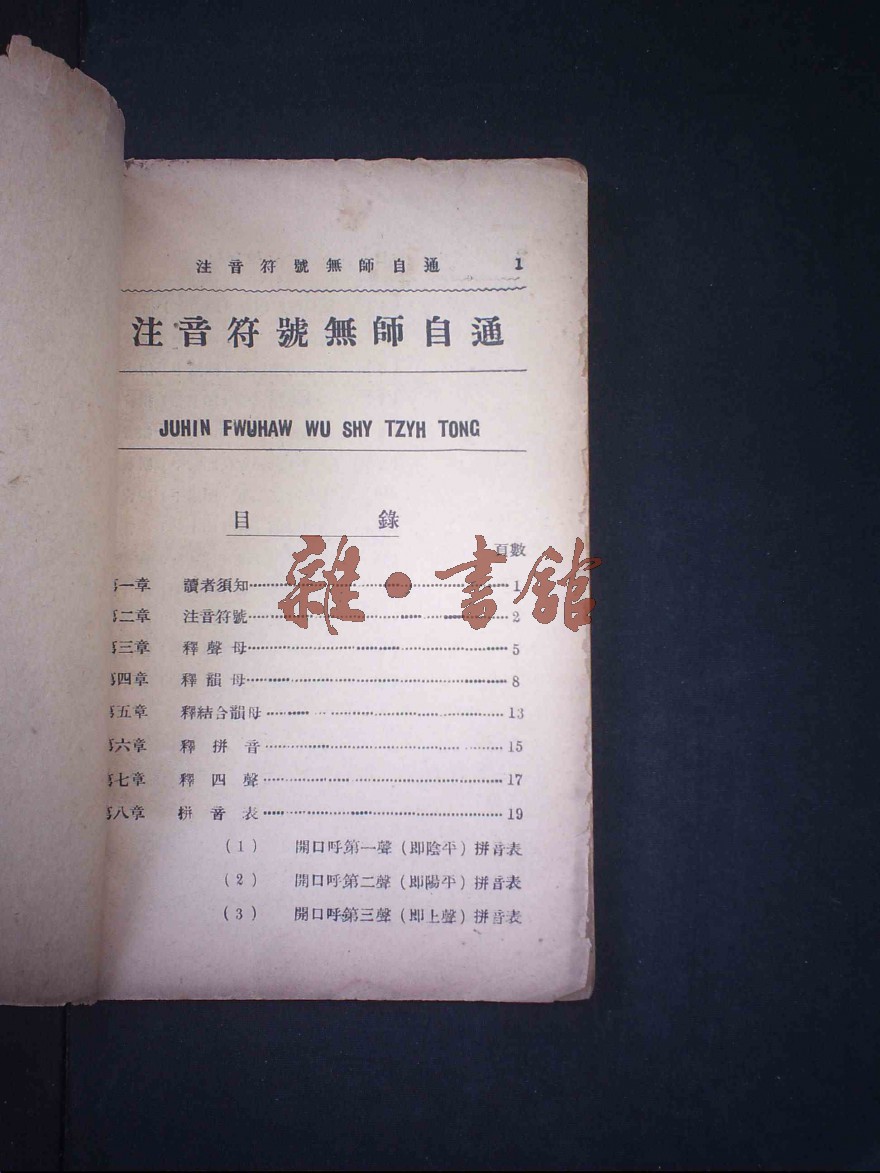 注音符號無師自通 1
注音符號無師自通
JUHIN FWUHAW WU SHY TZYH TONG
目錄
頁數
雜·書館
第一章 讀者須知 1
第二章 注音符號 2
第三章 釋聲母 5
第四章 釋韻母 8
第五章 釋結合韻母 13
第六章 釋拼音 15
第七章 釋四聲 17
第八章 拼音表 19
(1) 開口呼第一聲(即陰平)拼音表
(2) 開口呼第二聲(即陽平)拼音表
(3) 開口呼第三聲(即上聲)拼音表